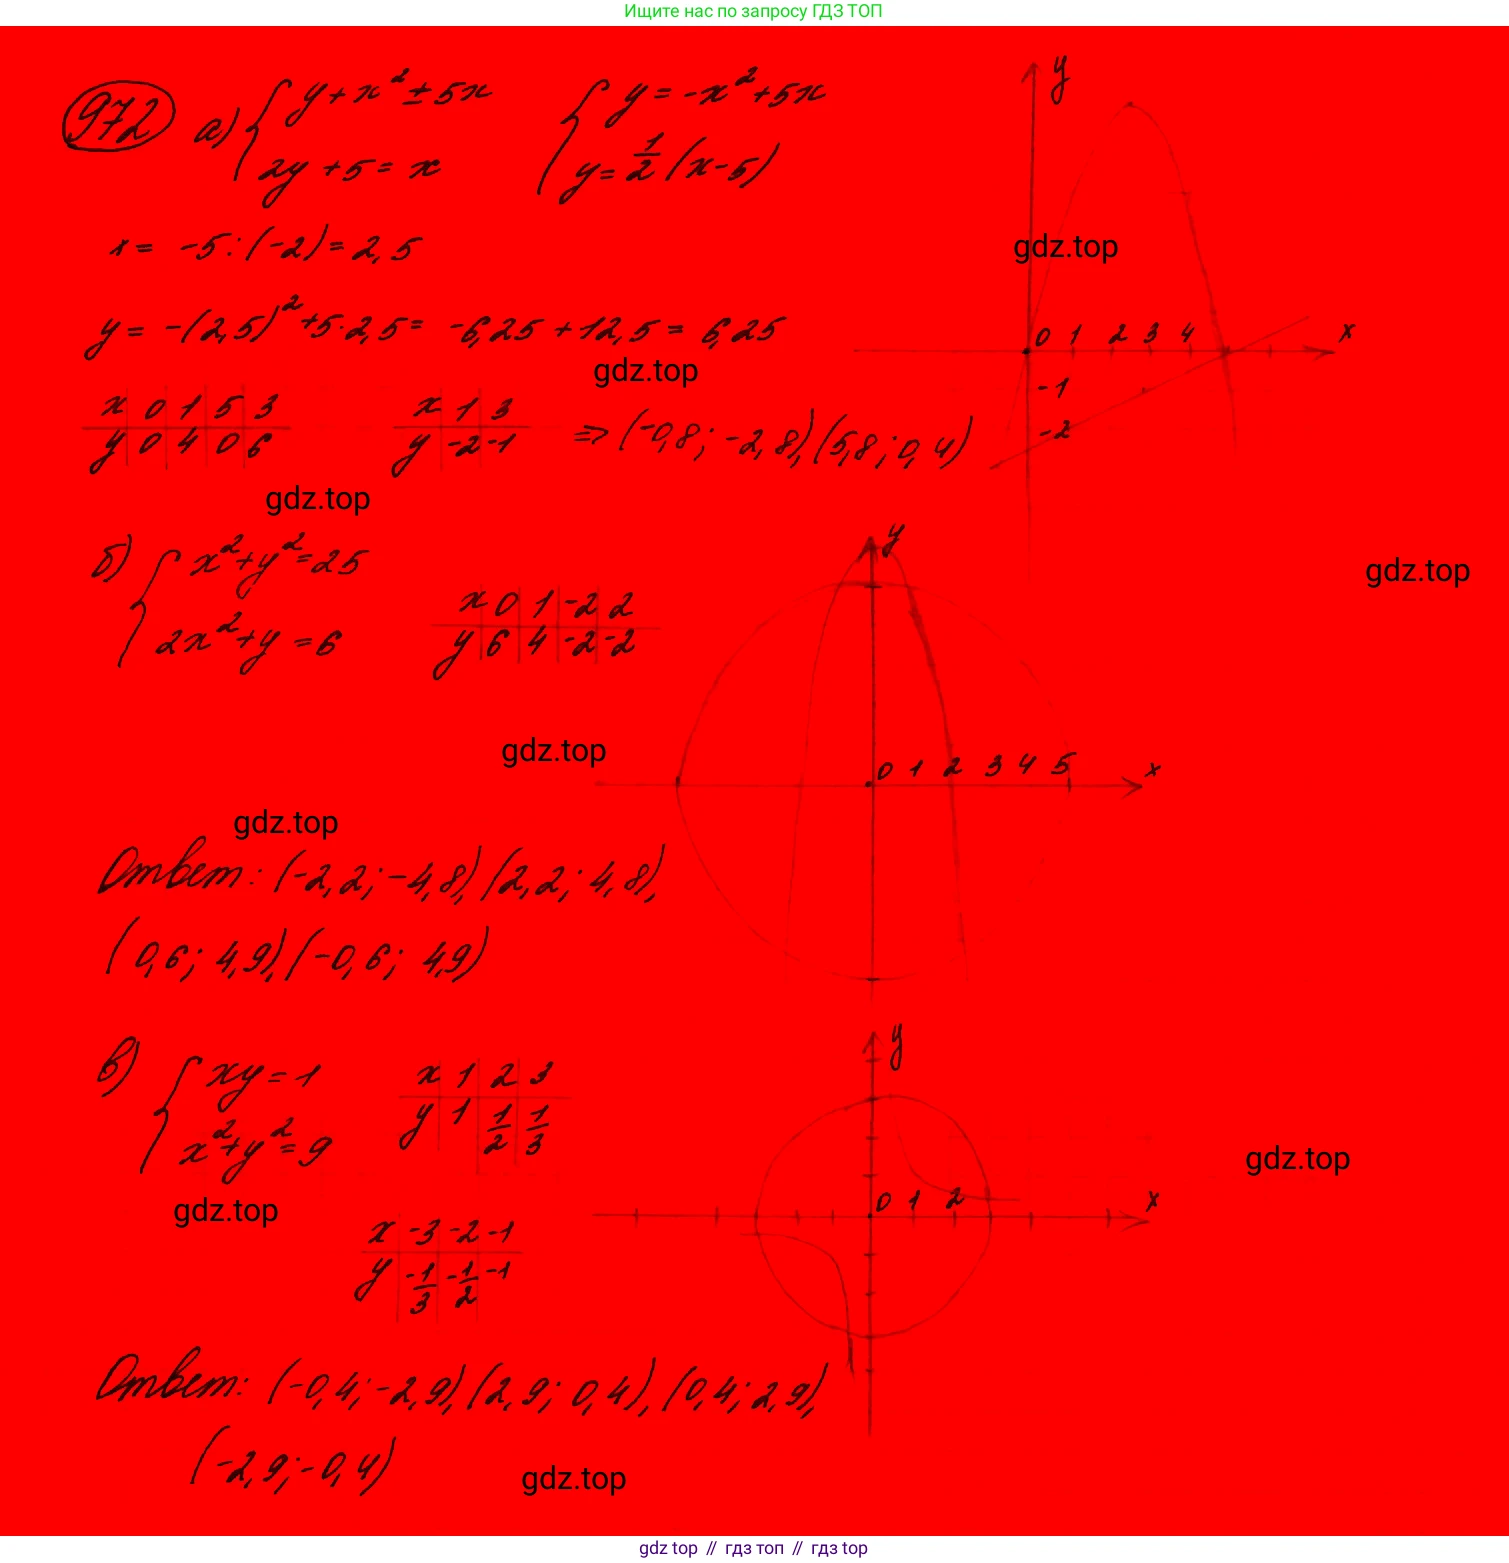 Ищите нас по запросу ГДЗ ТОП
972 а) { y + x² ± 5x { y = -x² + 5x
2y + 5 = x y = 1/2 (x - 5)
x = -5 : (-2) = 2,5
y = -(2,5)² + 5 · 2,5 = -6,25 + 12,5 = 6,25
x 0 1 5 3 x 1 3
y 0 4 0 6 y -2 -1 => (-0,8; -2,8), (5,8; 0,4)
y
gdz.top
0 1 2 3 4 x
-1
-2
gdz.top
gdz.top
б) { x² + y² = 25
2x² + y = 6
x 0 1 -2 2
y 6 4 -2 -2
y
gdz.top
0 1 2 3 4 5 x
gdz.top
gdz.top
Ответ: (-2,2; -4,8), (2,2; 4,8),
(0,6; 4,9), (-0,6; 4,9)
в) { xy = 1
x² + y² = 9
x 1 2 3
y 1 1/2 1/3
y
gdz.top
gdz.top
0 1 2 x
x -3 -2 -1
y -1/3 -1/2 -1
Ответ: (-0,4; -2,9), (2,9; 0,4), (0,4; 2,9),
(-2,9; -0,4)
gdz.top
gdz top // гдз топ // гдз top